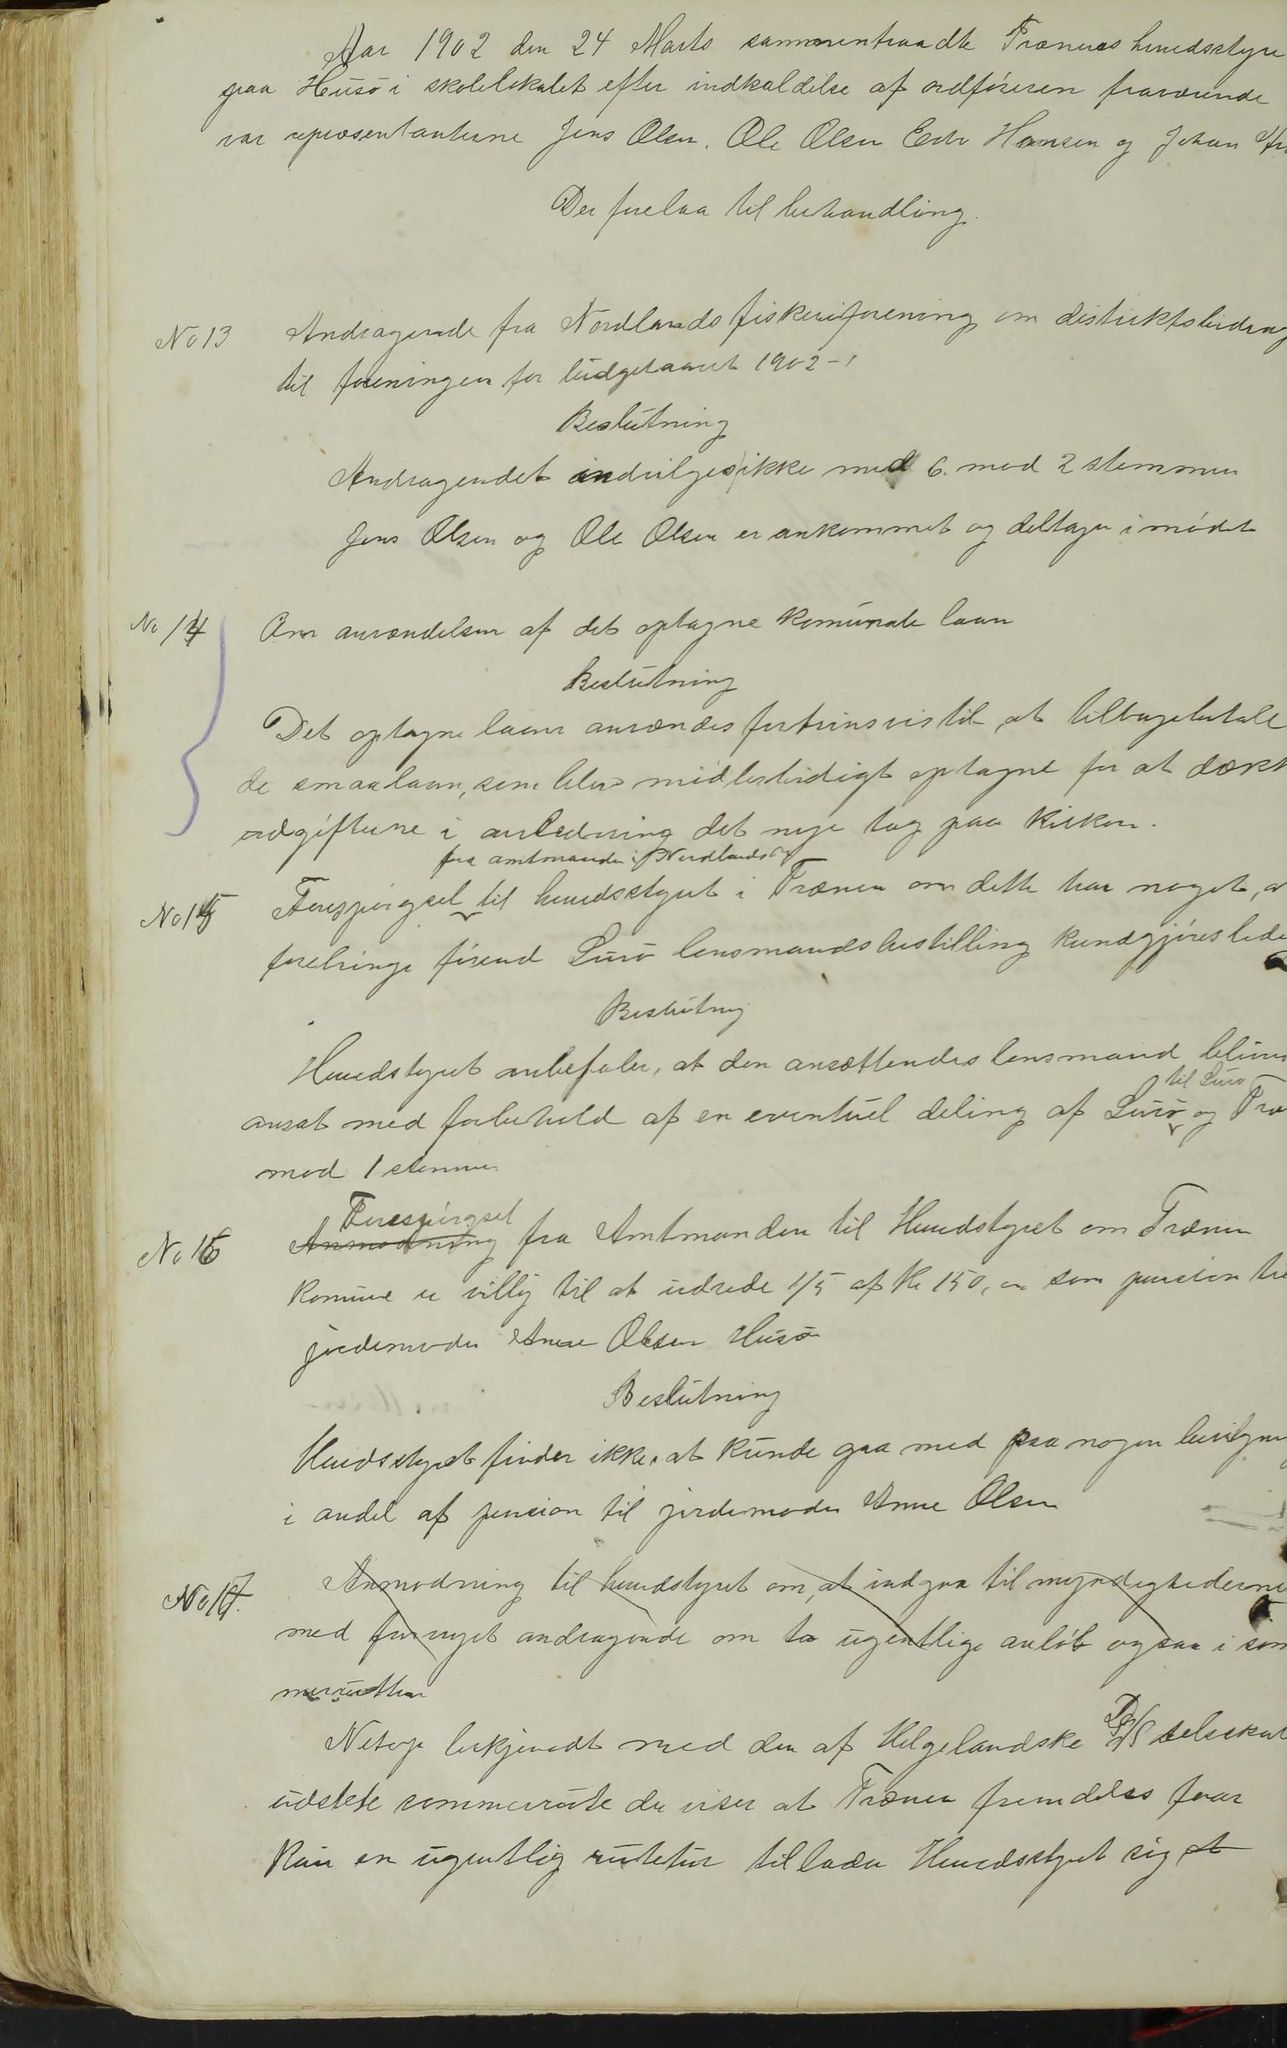 Aar 1902 den 24 Marts sammentraadte Trænens herredsstyre
paa Husø i skolelokalet efter indkaldelse af ordføreren fraværende
var repræsentanterne Jens Olsen. Ole Olsen Edv Hansen og Johan
Der forelaa til behandling.
No 13 Andragende fra Nordlands fiskeriforening om distriktsbidrag
til foreningen for budgetaaret 1902-
Beslutning
Andragendet indvilges ikke med 6. mod 2 stemmer
Jens Olsen og Ole Olsen er ankommet og deltager i mødet
No 14 Om anvendelsen af det optagne komunale laan
Beslutning
Det optagne laan anvendes fortrinsvis til at tilbagebetale
de smaalaan, som blev midlertidigt optagne for at dække
udgifterne i anledning det nye tag paa kirken.
fra amtmanden i Nordlands
No 15 Forespørgsel til herredsstyret i Trænen om dette har noget, at
forebringe førend Lurø lensmandsbestilling kundgjøres
Beslutning
Herredstyret anbefaler, at den ansættendes lensmand bliver
til Lurø
ansat med forbehold af en eventuel deling af Lurø og
mod 1 stemme
Forespørgsel
No 16 Anmodning fra Amtmanden til Herredstyret om Trænen
komune er villig til at udrede 1/5 af Kr 150, som pension til
jordemoder Anne Olsen Husø
Beslutning
Herredsstyret finder ikke at kunde gaa med paa nogen
i andel af pension til jordemoder Anne Olsen
No 17. Anmodning til herredstyret om, at indgaa til myndighederne
med fornyet andragende om to ugentlige anløb ogsaa i som
merruten
Netop bekjendt med den af Helgelandske D/S selskab
udstete sommerroute der viser at Trænen fremdeles faar
kun en ugentlig rutetur tillader Herredsstyret sig at